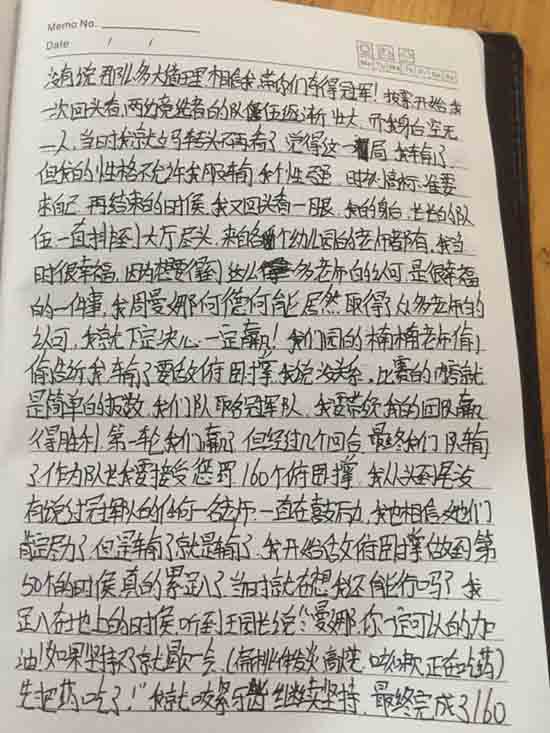 Memo No.
Date / /
Mo Tu We Th Fr Sa Su
没有说那么多大道理,相信我,带你们夺得冠军!投票开始,我
一次回头看,两边竞选者的队伍逐渐壮大,而我身后空无
一人,当时我就立马转头不再看了,觉得这一局,我输了,
但我的性格不允许我服输,我个性强,时刻高标准要
求自己,再结束的时候,我又回头看一眼,我的身后,长长的队
伍一直排到大厅尽头,来自各个幼儿园的老师都有,我当
时很幸福,因为想要得到这么多老师的认可,是很幸福
的一件事,我周曼娜何德何能,居然取得了众多老师的
认可,我就下定决心,一定赢!我们园的楠楠老师偷
偷告诉我,输了要做俯卧撑,我说没关系,比赛的内容就
是简单的报数,我们队取名冠军队,我要带领我的团队赢
得胜利,第一轮我们赢了,但经过几个回合,最终我们队输
了,作为队长我要接受惩罚160个俯卧撑,我从头到尾没
有说过冠军队的任何一名老师,一直在鼓励,我也相信她们
肯定尽力了,但是输了就是输了,我开始做俯卧撑,做到第
50个的时候,真的累趴了,当时就在想我还能行吗?我
趴在地上的时候,听到王园长说:"曼娜,你一定可以的,加
油!如果坚持不了就歇一会,(扁桃体发炎,高烧,咳嗽,正在吃药)
先把药吃了!"我就咬紧牙齿,继续坚持,最终完成了160